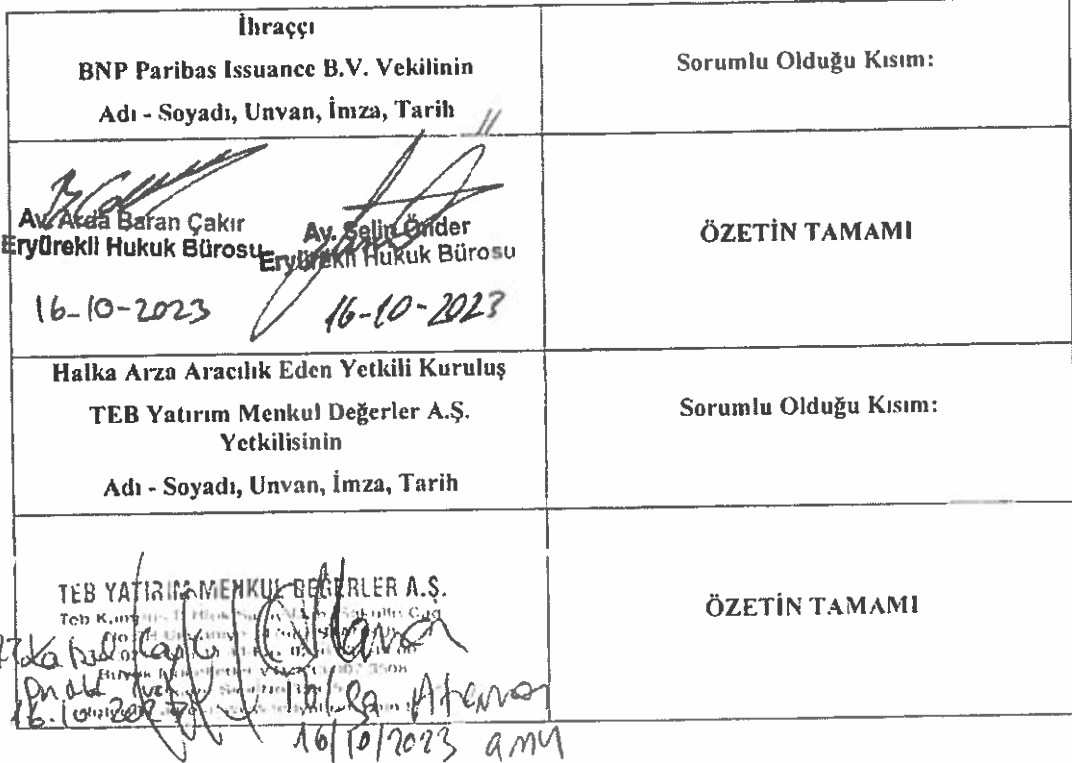 İhraççı
BNP Paribas Issuance B.V. Vekilinin
Adı - Soyadı, Unvan, İmza, Tarih
Sorumlu Olduğu Kısım:
Av. Arda Baran Çakır
Eryürekli Hukuk Bürosu
16-10-2023
Av. Selin Önder
Eryürekli Hukuk Bürosu
16-10-2023
ÖZETİN TAMAMI
Halka Arza Aracılık Eden Yetkili Kuruluş
TEB Yatırım Menkul Değerler A.Ş.
Yetkilisinin
Adı - Soyadı, Unvan, İmza, Tarih
Sorumlu Olduğu Kısım:
TEB YATIRIM MENKUL DEĞERLER A.Ş.
16/10/2023
ÖZETİN TAMAMI